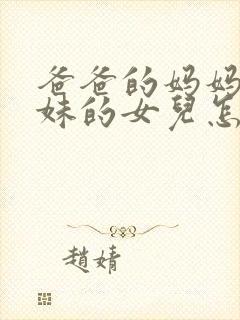 爸爸的妈妈
妹的女兒怎
趙婧